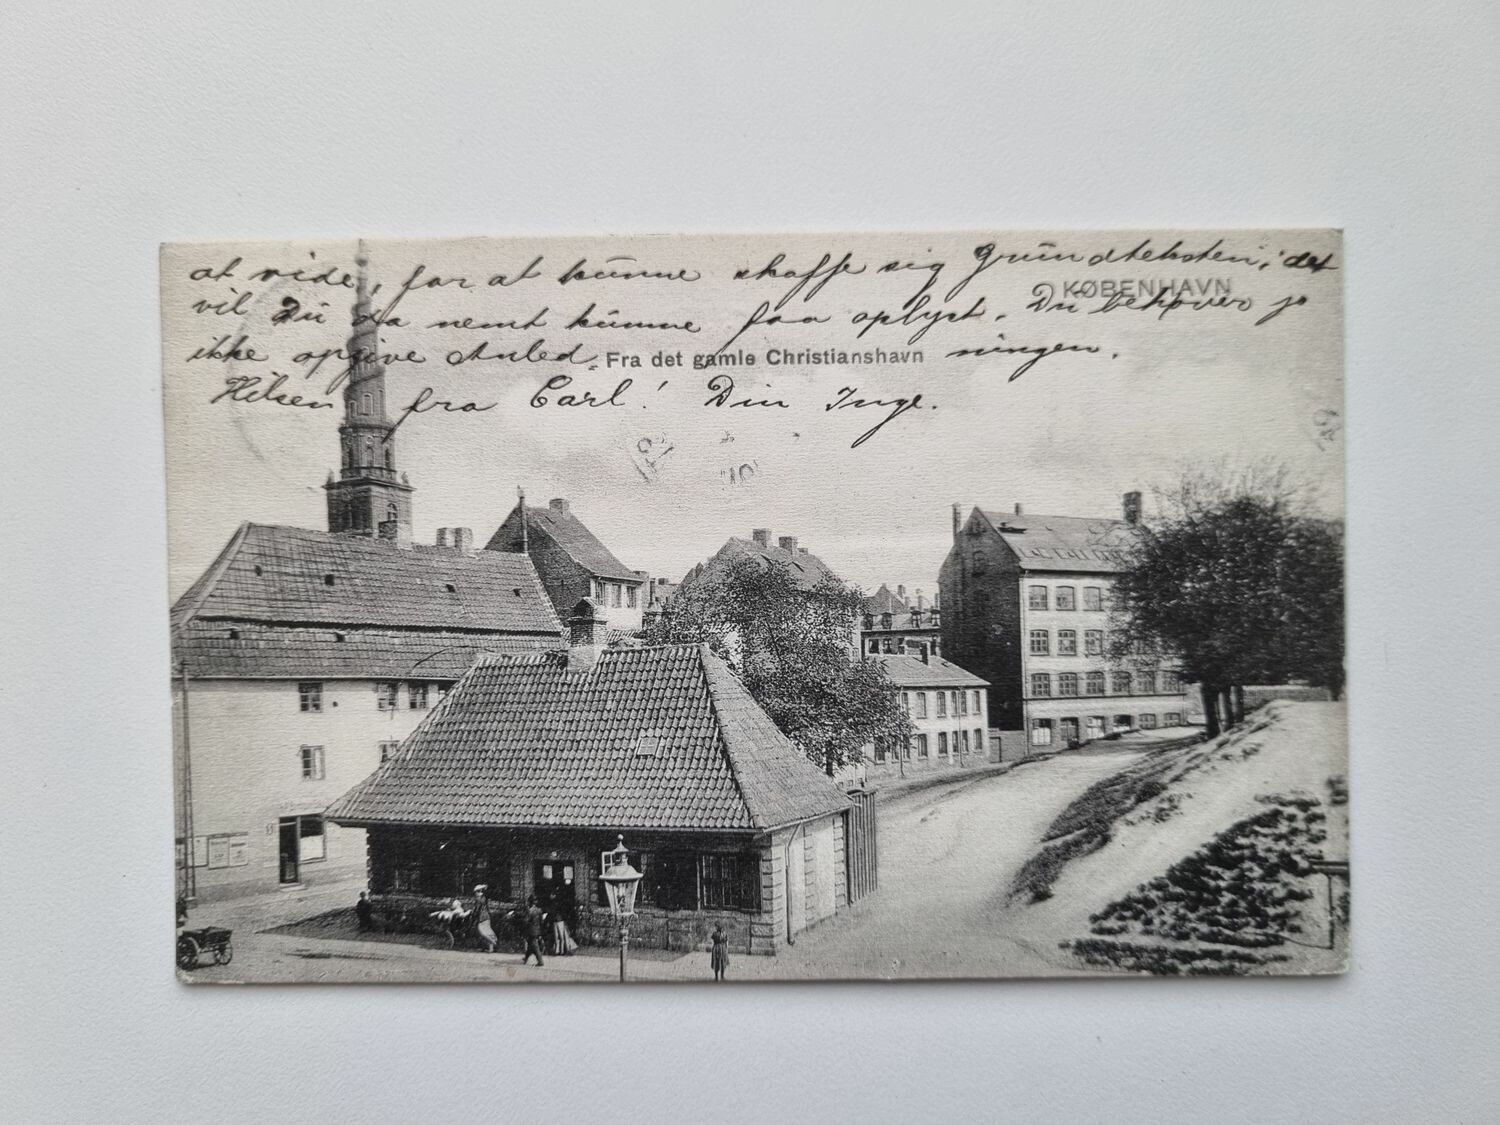 at vide, for at kunne skaffe sig Grundteksten; det
KØBENHAVN
vil Du da nemt kunne faa oplyst. Du behøver jo
ikke opgive Anled-
Fra det gamle Christianshavn
ningen.
Hilsen fra Carl! Din Inge.